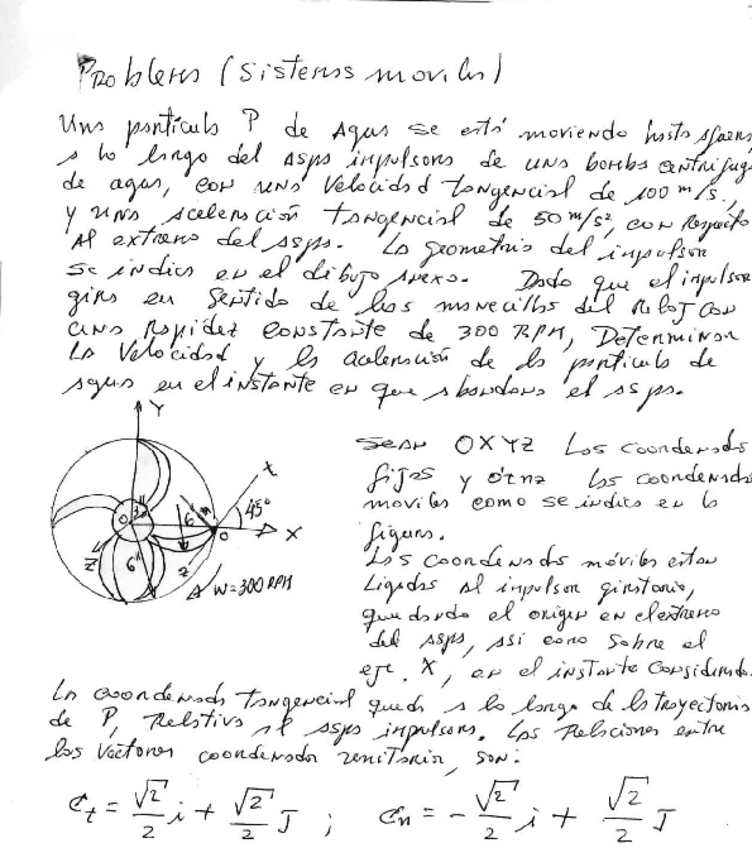 Problema (Sistemas moviles)
Una partícula P de Agua se está moviendo hasta afuera,
a lo largo del aspa impulsora de una bomba centrifuga
de agua, con una velocidad tangencial de 100 m/s.,
y una aceleración tangencial de 50 m/s², con respecto
al extremo del aspa. La geometria del impulsor
se indica en el dibujo anexo. Dado que el impulsor
gira en sentido de las manecillas del reloj con
una rapidez constante de 300 RPM, Determinar
la velocidad y la aceleración de la partícula de
agua en el instante en que abandona el aspa.
Y
x
45°
O 3"
6" m
X
o
Z
6"
z
W=300 RPM
Sean OXYZ Las coordenadas
fijas y las coordenadas
moviles como se indica en la
figura.
Las coordenadas móviles estan
Ligadas al impulsor giratorio,
quedando el origen en el extremo
del aspa, asi como sobre el
eje X, en el instante considerado.
La coordenada tangencial queda a lo largo de la trayectoria
de P, relativa al aspa impulsora. Las relaciones entre
los vectores coordenados unitarios, son:
e_t = √2/2 i + √2/2 J ; e_n = - √2/2 i + √2/2 J